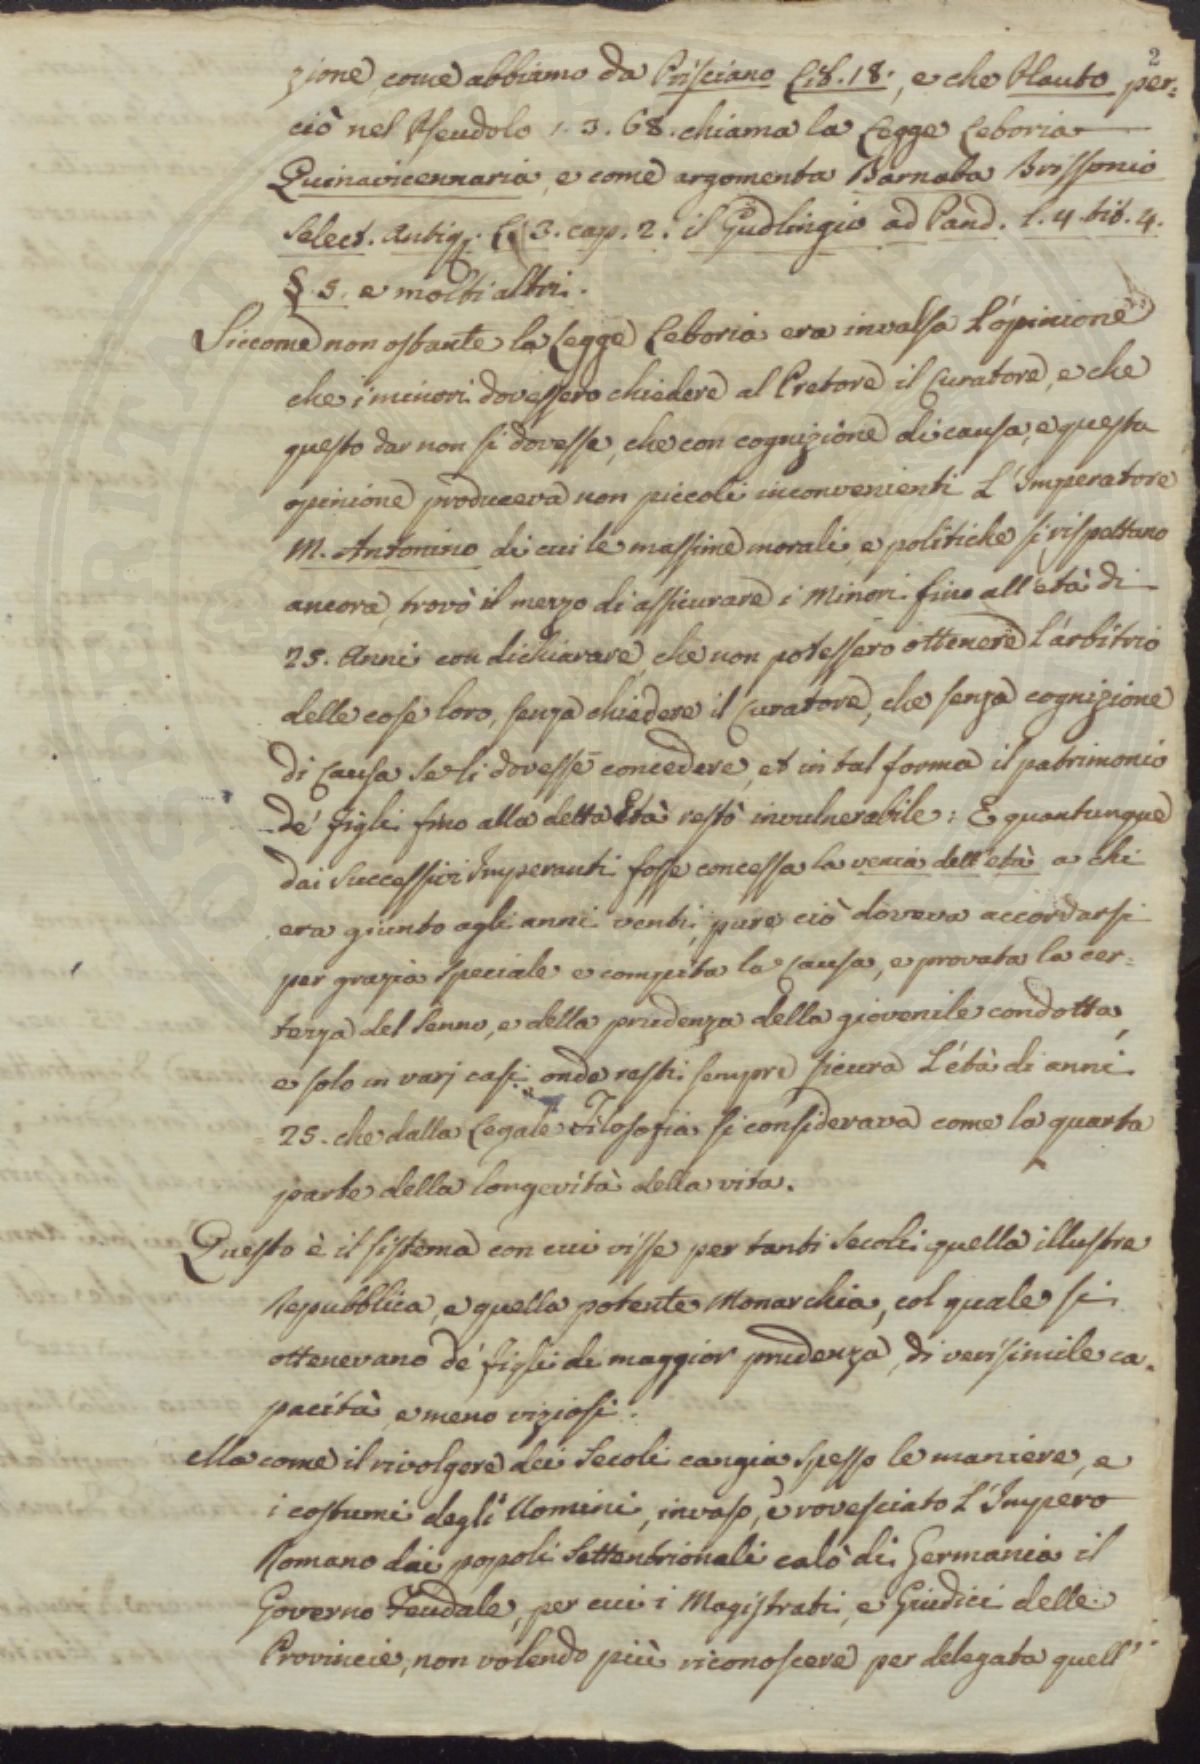 2
zione, come abbiamo da Prisciano Lib. 18., e che Plauto per=
ciò nel Pseudolo 1. 3. 68. chiama la Legge Letoria
Quinavicennaria, e come argomenta Barnaba Brissonio
Select. Antiq. L. 3. cap. 2. il Gudlingio ad Pand. l. 4. tit. 4.
§. 5. e molti altri.
Siccome non ostante la Legge Letoria era invalsa l'opinione
che i minori dovessero chiedere al Pretore il Curatore, e che
questo dar non si dovesse, che con cognizione di causa, e questa
opinione produceva non piccoli inconvenienti L'Imperatore
M. Antonino di cui le massime morali, e politiche si rispettano
ancora, trovò il mezzo di assicurare i Minori fino all'età di
25. Anni con dichiarare, che non potessero ottenere l'arbitrio
delle cose loro, senza chiedere il Curatore, che senza cognizione
di Causa se li dovesse concedere, et in tal forma il patrimonio
de' figli fino alla detta Età restò invulnerabile: E quantunque
dai Successivi Imperanti fosse concessa la venia dell'età a chi
era giunto agli anni venti, pure ciò doveva accordarsi
per grazia speciale e compita la Causa, e provata la cer=
tezza del Senno, e della prudenza della giovenile condotta,
e solo in varj casi onde resti sempre sicura L'età di anni
25. che dalla Legale Filosofia si considerava come la quarta
parte della longevità della vita.
Questo è il sistema con cui visse per tanti Secoli quella illustre
Repubblica, e quella potente Monarchia, col quale si
ottenevano de' figli di maggior prudenza, di verisimile ca=
pacità, e meno viziosi.
Ma come il rivolgere dei Secoli cangia spesso le maniere, e
i costumi degli Uomini, invaso, e rovesciato L'Impero
Romano dai popoli Settentrionali calò di Germania il
Governo Feudale, per cui i Magistrati, e Giudici delle
Provincie, non volendo più riconoscere per delegata quell'